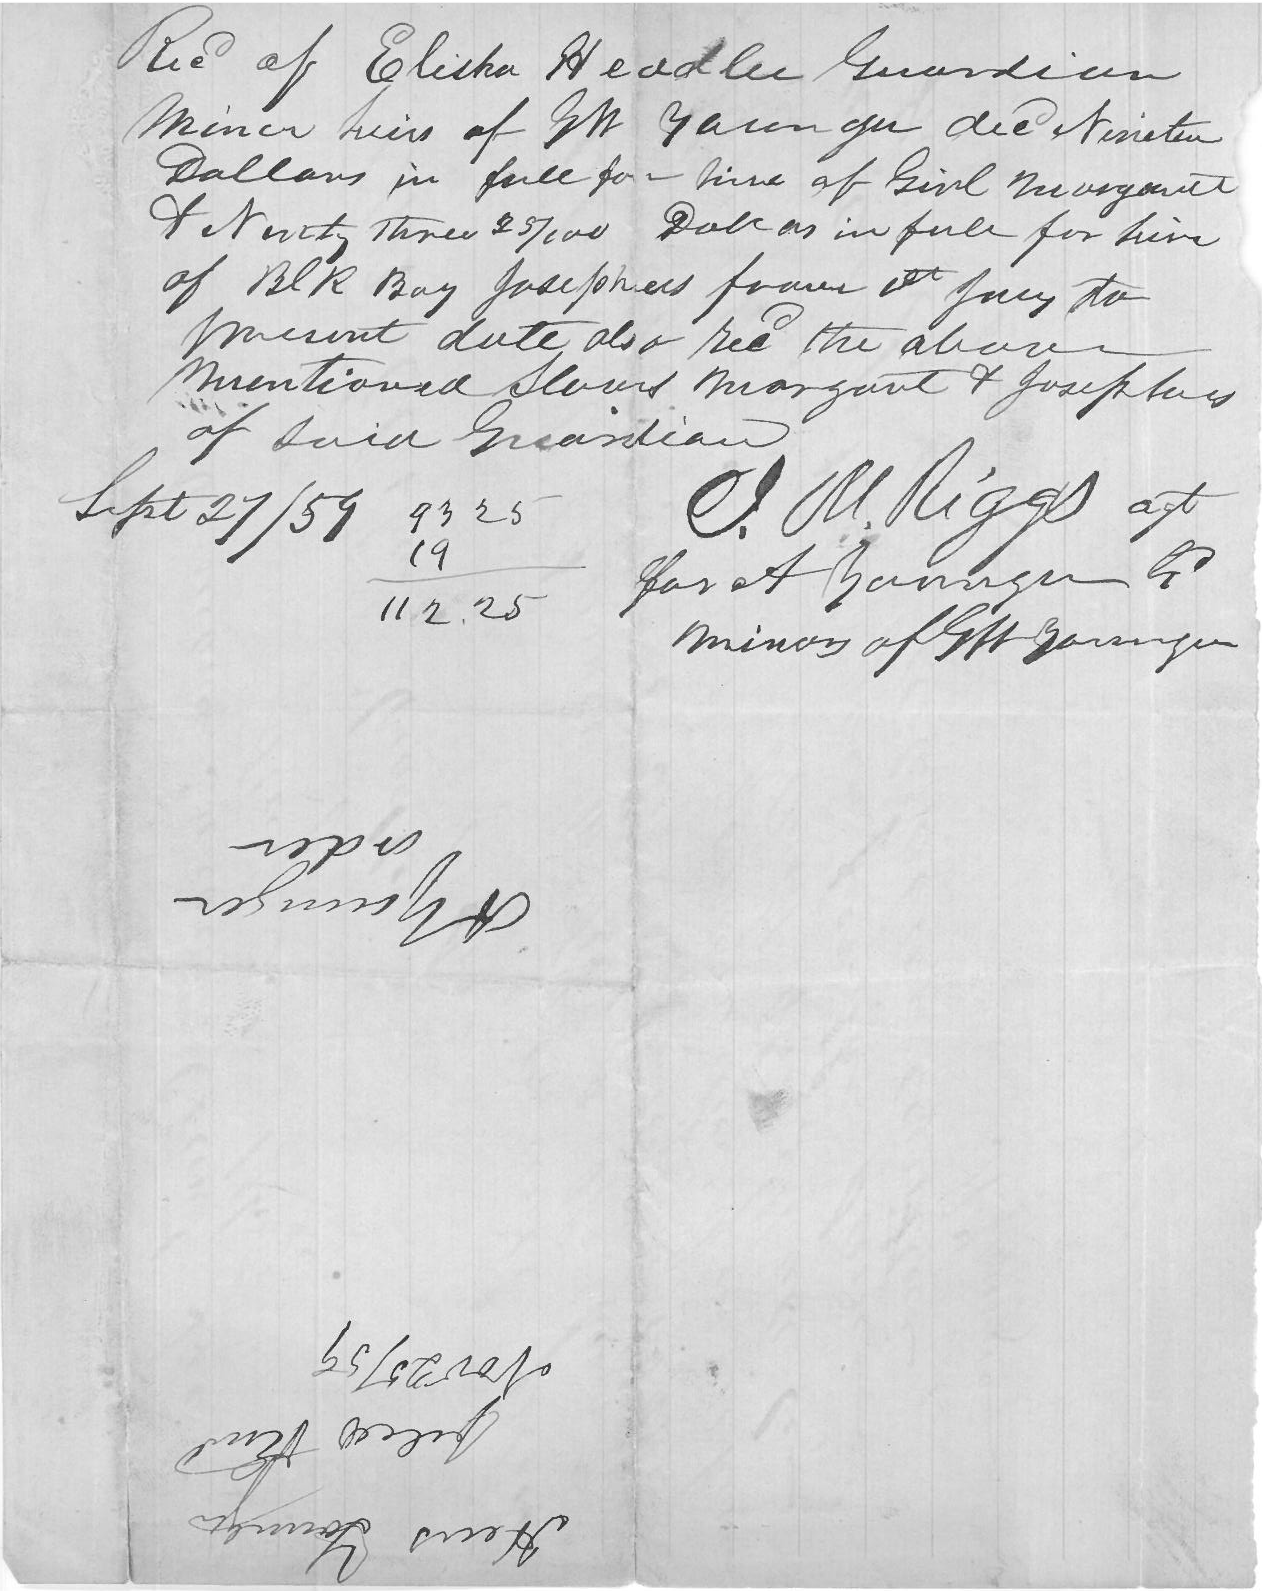 Recd of Elisha Headlee Guardian
Minor heirs of GW Younger decd Nineteen
Dollars in full for hire of Girl Margarett
& Ninety three 25/100 Dollars in full for hire
of Blk Boy Josephus from 1st Jany to
present date also recd the above
mentioned Slaves Margaret & Josephus
of said Guardian
Sept 27/59 93 25
19
112.25
J. M. Riggs agt
for A Younger Gd
minors of GW Younger
A Younger
order
Heirs Younger
filed
Nov 25/59